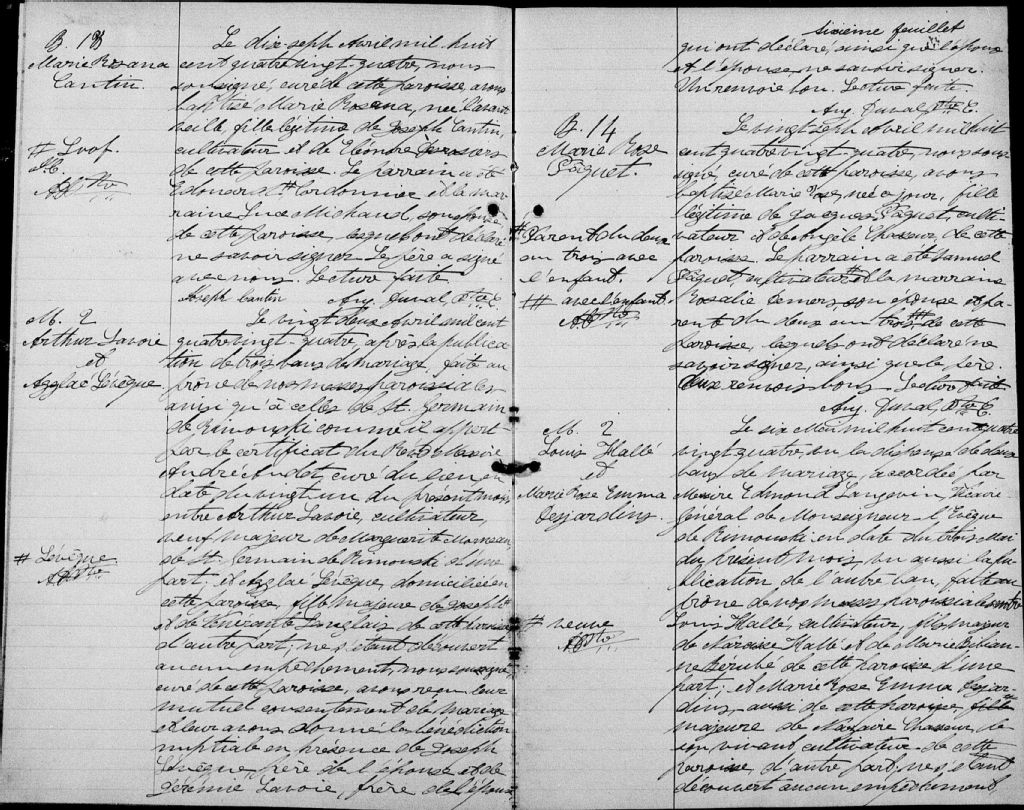 B. 13
Marie Rosana
Cantin.
Le dix-sept Avril mil huit
cent quatre vingt-quatre, nous
soussigné, curé de cette paroisse, avons
baptisé Marie Rosana, née l'avant
veille, fille légitime de Joseph Cantin,
cultivateur et de
de cette paroisse. Le parrain a été
Edouard Cardonnier et la mar-
raine Luce Michaud, son épouse
de cette paroisse, lesquels ont déclaré
ne savoir signer. Le père a signé
avec nous. Lecture faite
Joseph Cantin Aug. Duval, Ptre C.
M. 2
Arthur Lavoie
et
Azglae Lévêque.
# Lévêque
Le vingt deux Avril mil cent
quatre vingt-quatre, après la publica-
tion de trois bans de mariage, faite au
prône de nos messes paroissiales
ainsi qu'à celles de St. Germain
de Rimouski comme il appert
par le certificat du Révd Messire
André Audet curé du lieu en
date du vingt un du présent mois,
entre Arthur Lavoie, cultivateur,
veuf majeur de Marguerite Moreau
de St. Germain de Rimouski d'une
part; et Azglae Lévêque, domiciliée en
cette paroisse, fille majeure de Joseph #
et de Langlais de cette paroisse
d'autre part; ne s'étant découvert
aucun empêchement, nous soussigné
curé de cette paroisse, avons reçu leur
mutuel consentement de mariage
et leur avons donné la bénédiction
nuptiale en présence de Joseph
Lévêque, père de l'épouse et de
Lavoie, frère de l'époux
sixième feuillet
qui ont déclaré, ainsi que l'époux
et l'épouse, ne savoir signer.
Un renvoi bon. Lecture faite
Aug. Duval, Ptre C.
B. 14
Marie Rose
Paquet.
# Parent du deux
au trois avec
l'enfant.
## avec l'enfant.
Le vingt sept Avril mil huit
cent quatre vingt-quatre, nous sous-
signé, curé de cette paroisse, avons
baptisé Marie Rose, née ce jour, fille
légitime de Jacques Paquet, culti-
vateur et de Angèle Chasseur de cette
paroisse. Le parrain a été Samuel
Paquet, cultivateur # et la marraine
Rosalie Lemers, son épouse et pa-
rente du deux au trois ## de cette
paroisse, lesquels ont déclaré ne
savoir signer, ainsi que le père.
Deux renvois bons. Lecture faite
Aug. Duval, Ptre C.
M. 2
Louis Hallé
et
Marie Rose Emma
Desjardins.
# veuve
Le six Mai mil huit cent quatre
vingt quatre, vu la dispense de deux
bans de mariage, accordée par
Messire Edmond Langevin, Vicaire
Général de Monseigneur l'Evêque
de Rimouski en date du trois Mai
du présent mois, vu aussi la pu-
blication de l'autre ban, faite au
prône de nos messes paroissiales entre
Louis Hallé, cultivateur, fils majeur
de Narcisse Hallé et de Marie Bibian-
ne Berubé de cette paroisse d'une
part; et Marie Rose Emma Desjar-
dins, aussi de cette paroisse, fille #
majeure de Nazaire Chasseur, de
son vivant cultivateur de cette
paroisse, d'autre part; ne s'étant
découvert aucun empêchement,